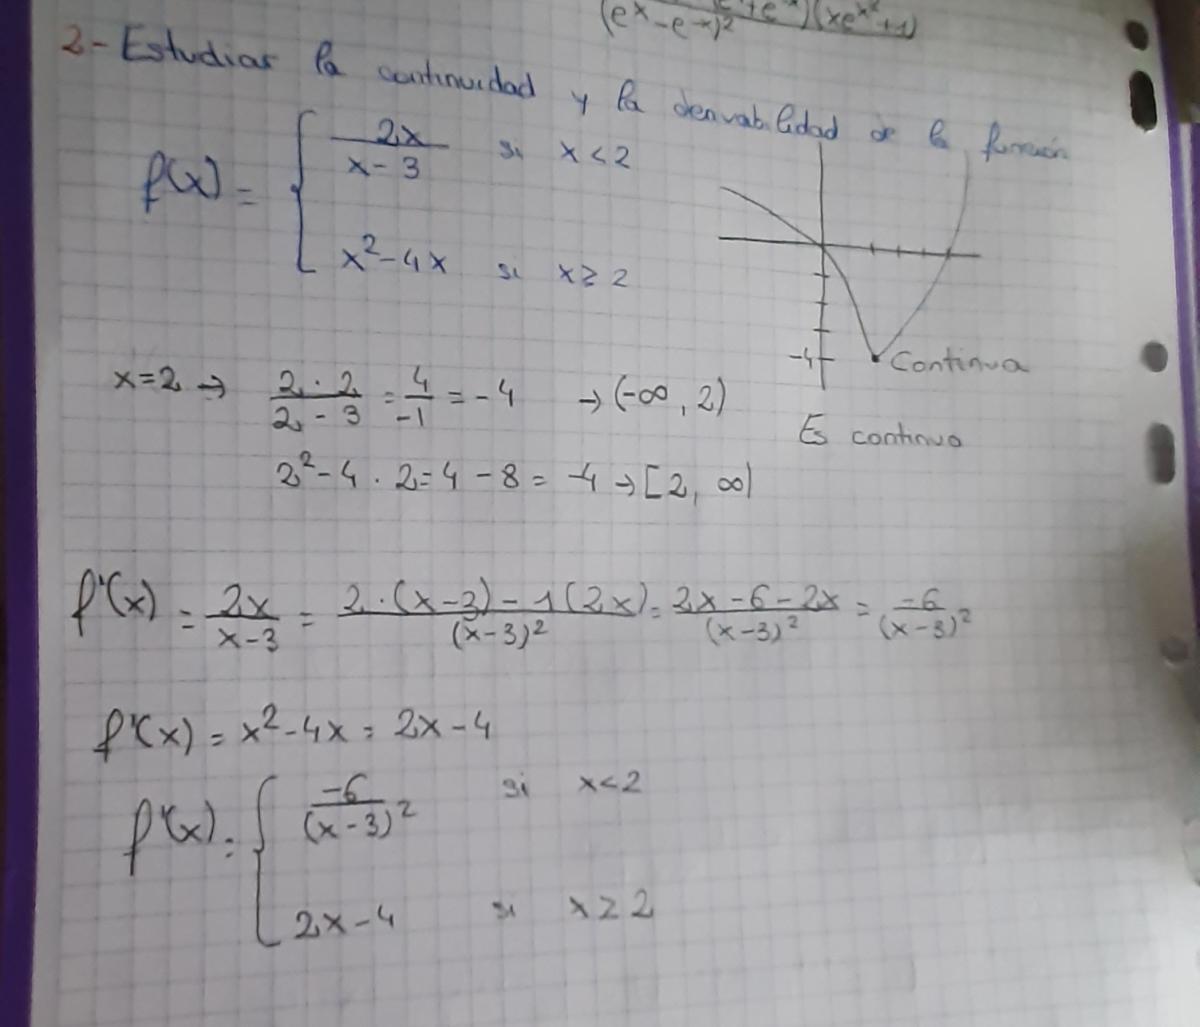 (eˣ-e⁻ˣ)²
2- Estudiar la continuidad y la derivabilidad de la función
f(x) = { 2x/(x-3) si x < 2
x²-4x si x ≥ 2
-4 Continua
x=2 → (2·2)/(2-3) = 4/-1 = -4 → (-∞, 2)
Es continua
2²-4·2=4-8= -4 → [2, ∞)
f'(x) = 2x/(x-3) = (2·(x-3)-1(2x))/(x-3)² = (2x-6-2x)/(x-3)² = -6/(x-3)²
f'(x) = x²-4x = 2x-4
f'(x) = { -6/(x-3)² si x<2
2x-4 si x ≥ 2